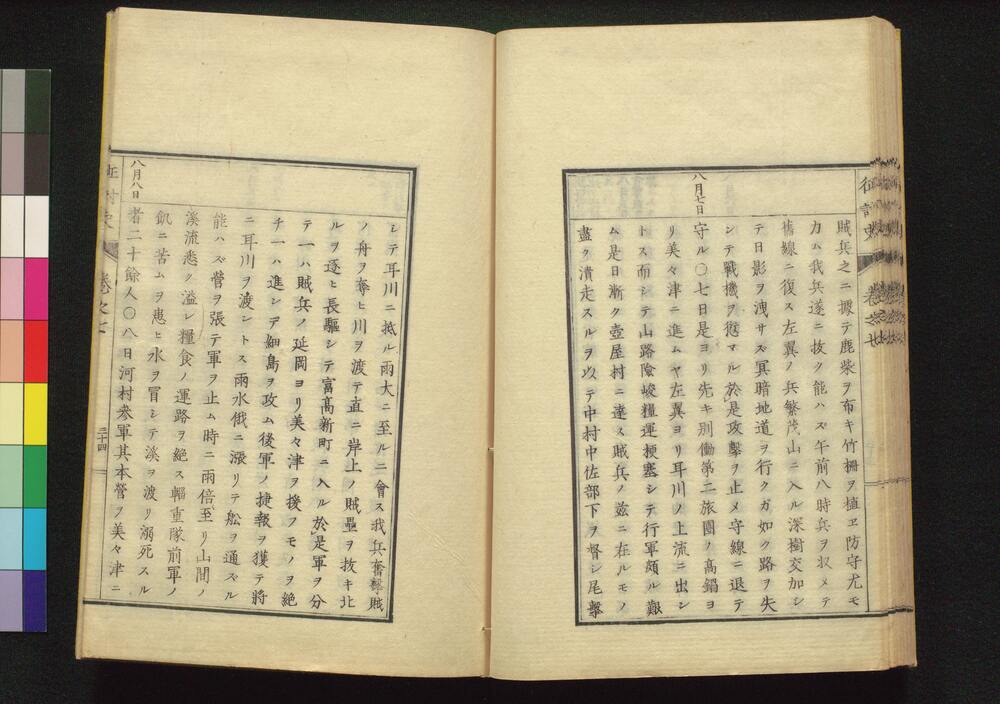 征討史
巻之七
賊兵之ニ據テ鹿柴ヲ布キ竹柵ヲ植ヱ防守尤モ
力ム我兵遂ニ抜ク能ハズ午前八時兵ヲ収メテ
舊線ニ復ス左翼ノ兵繁茂山ニ入ル深樹交加シ
テ日影ヲ洩サズ冥暗地道ヲ行クガ如ク路ヲ失
シテ戰機ヲ愆マル於是攻擊ヲ止メ守線ニ退テ
八月七日
守ル〇七日是ヨリ先キ別働第二旅團ノ髙鍋ヨ
リ美々津ニ進ムヤ左翼ヨリ耳川ノ上流ニ出シ
トス而シテ山路險峻糧運梗塞シテ行軍頗ル艱
ム是日漸ク壺屋村ニ達ス賊兵ノ茲ニ在ルモノ
盡ク潰走スルヲ以テ中村中佐部下ヲ督シ尾擊
シテ耳川ニ抵ル雨大ニ至ルニ會ス我兵奮擊賊
ノ舟ヲ奪ヒ川ヲ渡テ直ニ岸上ノ賊壘ヲ抜キ北
ルヲ逐ヒ長驅シテ富髙新町ニ入ル於是軍ヲ分
テ一ハ賊兵ノ延岡ヨリ美々津ヲ援フモノヲ絶
チ一ハ進シデ細島ヲ攻ム後軍ノ捷報ヲ獲テ將
ニ耳川ヲ渡シトス雨水俄ニ漲リテ舩ヲ通ズル
能ハズ營ヲ張テ軍ヲ止ム時ニ雨倍至リ山間ノ
溪流悉ク溢レ糧食ノ運路ヲ絶ス輜重隊前軍ノ
飢ニ苦ムヲ患ヒ水ヲ冒シテ溪ヲ渡リ溺死スル
八月八日
者二十餘人〇八日河村参軍其本營ヲ美々津ニ
巻之七
三十四